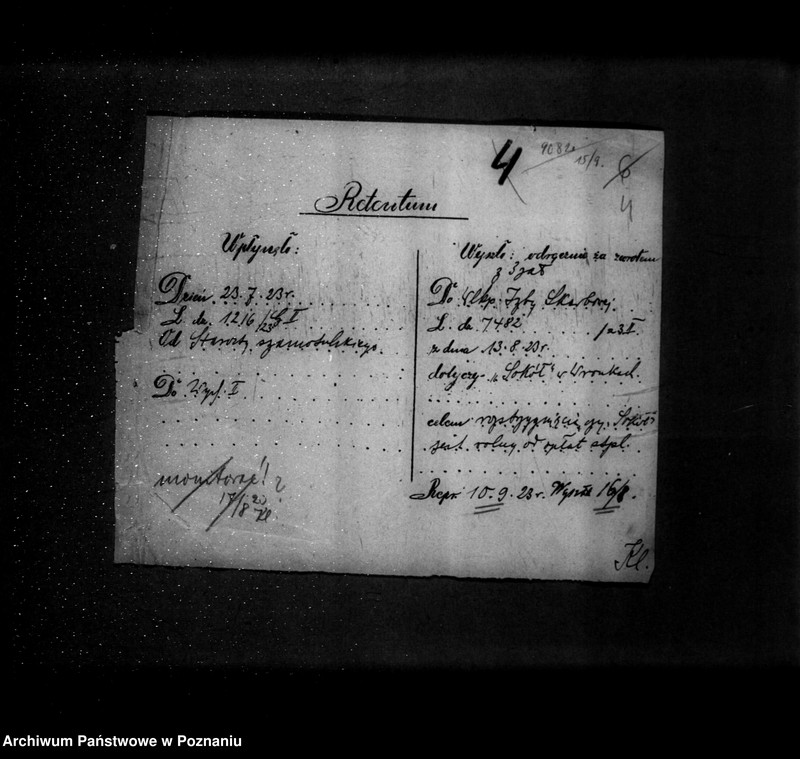 4
15/9.
4
Retentum
Wpłynęło:
Dzień 23.7.23r.
L. dz. 1216/23 I
Od Starosty szamotulskiego.
Do Wych. I
monitować!
17/8 23
Kl
Wyszło: odręcznie za zwrotem
z 3 zał
Do Wlkp. Izby Skarbowej
L. dz. 7482/23 I.
z dnia 13.8.23r.
dotyczy "Sokół" w Wronkach.
celem rozstrzygnięcia czy Sokół
jest wolny od opłat stpl.
Repr. 10.9.23r. Wyszło 16/8.
Kl.
Archiwum Państwowe w Poznaniu